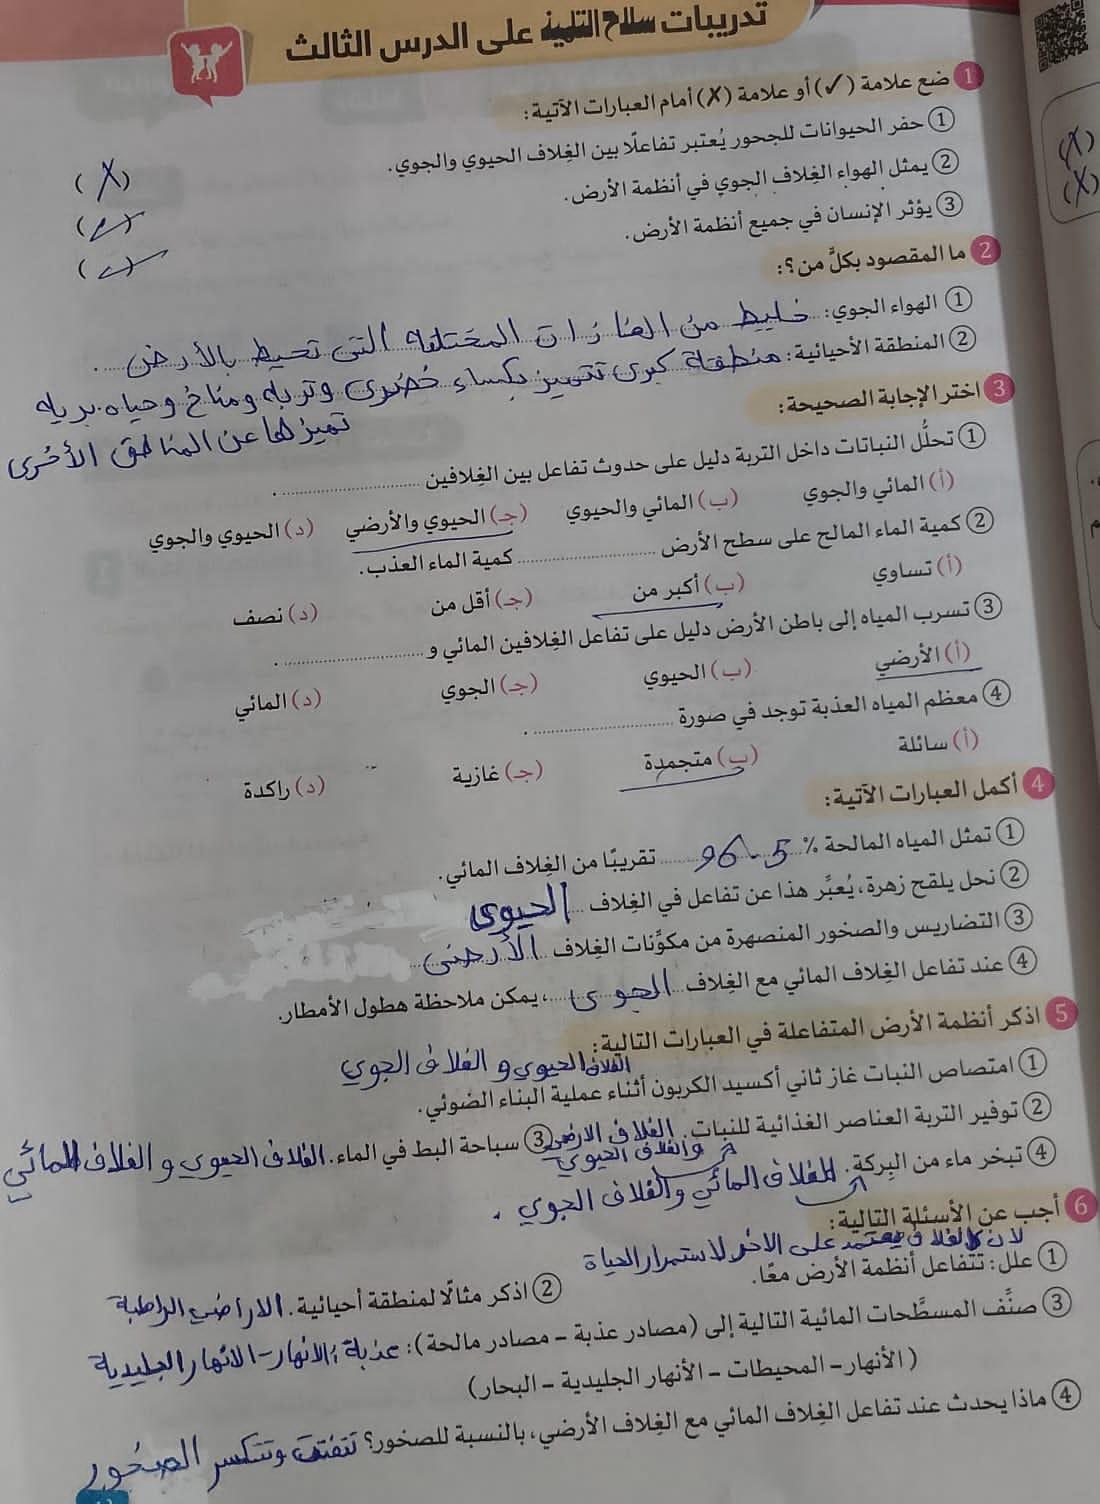 تدريبات سلاح التلميذ على الدرس الثالث
1 ضع علامة (✓) أو علامة (✗) أمام العبارات الآتية:
① حفر الحيوانات للجحور يُعتبر تفاعلًا بين الغِلاف الحيوي والجوي. (✗)
② يمثل الهواء الغِلاف الجوي في أنظمة الأرض. (✓)
③ يؤثر الإنسان في جميع أنظمة الأرض. (✓)
2 ما المقصود بكلٍّ من؟:
① الهواء الجوي: خليط من الغازات المختلفة التى تحيط بالأرض.
② المنطقة الأحيائية: منطقة كبرى تتميز بكساء خضرى وتربه ومناخ وحياه بريه
تميزها عن المناطق الأخرى
3 اختر الإجابة الصحيحة:
① تحلُّل النباتات داخل التربة دليل على حدوث تفاعل بين الغِلافين ..........
(أ) المائي والجوي (ب) المائي والحيوي (جـ) الحيوي والأرضي (د) الحيوي والجوي
② كمية الماء المالح على سطح الأرض .......... كمية الماء العذب.
(أ) تساوي (ب) أكبر من (جـ) أقل من (د) نصف
③ تسرب المياه إلى باطن الأرض دليل على تفاعل الغِلافين المائي و ..........
(أ) الأرضي (ب) الحيوي (جـ) الجوي (د) المائي
④ معظم المياه العذبة توجد في صورة ..........
(أ) سائلة (ب) متجمدة (جـ) غازية (د) راكدة
4 أكمل العبارات الآتية:
① تمثل المياه المالحة % 96.5 تقريبًا من الغِلاف المائي.
② نحل يلقح زهرة، يُعبِّر هذا عن تفاعل في الغِلاف الحيوى
③ التضاريس والصخور المنصهرة من مكوِّنات الغِلاف الأرضى
④ عند تفاعل الغِلاف المائي مع الغِلاف الجوى، يمكن ملاحظة هطول الأمطار.
5 اذكر أنظمة الأرض المتفاعلة في العبارات التالية:
الغلاف الحيوي و الغلاف الجوي
① امتصاص النبات غاز ثاني أكسيد الكربون أثناء عملية البناء الضوئي.
② توفير التربة العناصر الغذائية للنبات. الغلاف الارضي والغلاف الحيوي ③ سباحة البط في الماء. الغلاف الحيوي و الغلاف المائي
④ تبخر ماء من البِركة. الغلاف المائي والغلاف الجوي.
6 أجب عن الأسئلة التالية:
لان كل غلاف يعتمد على الاخر لاستمرار الحياة
① علل: تتفاعل أنظمة الأرض معًا. ② اذكر مثالًا لمنطقة أحيائية. الاراضي الرطبة
③ صنِّف المسطَّحات المائية التالية إلى (مصادر عذبة – مصادر مالحة): عذبة: الانهار - الانهار الجليدية
(الأنهار – المحيطات – الأنهار الجليدية – البحار)
④ ماذا يحدث عند تفاعل الغِلاف المائي مع الغِلاف الأرضي، بالنسبة للصخور؟ تتفتت وتتكسر الصخور